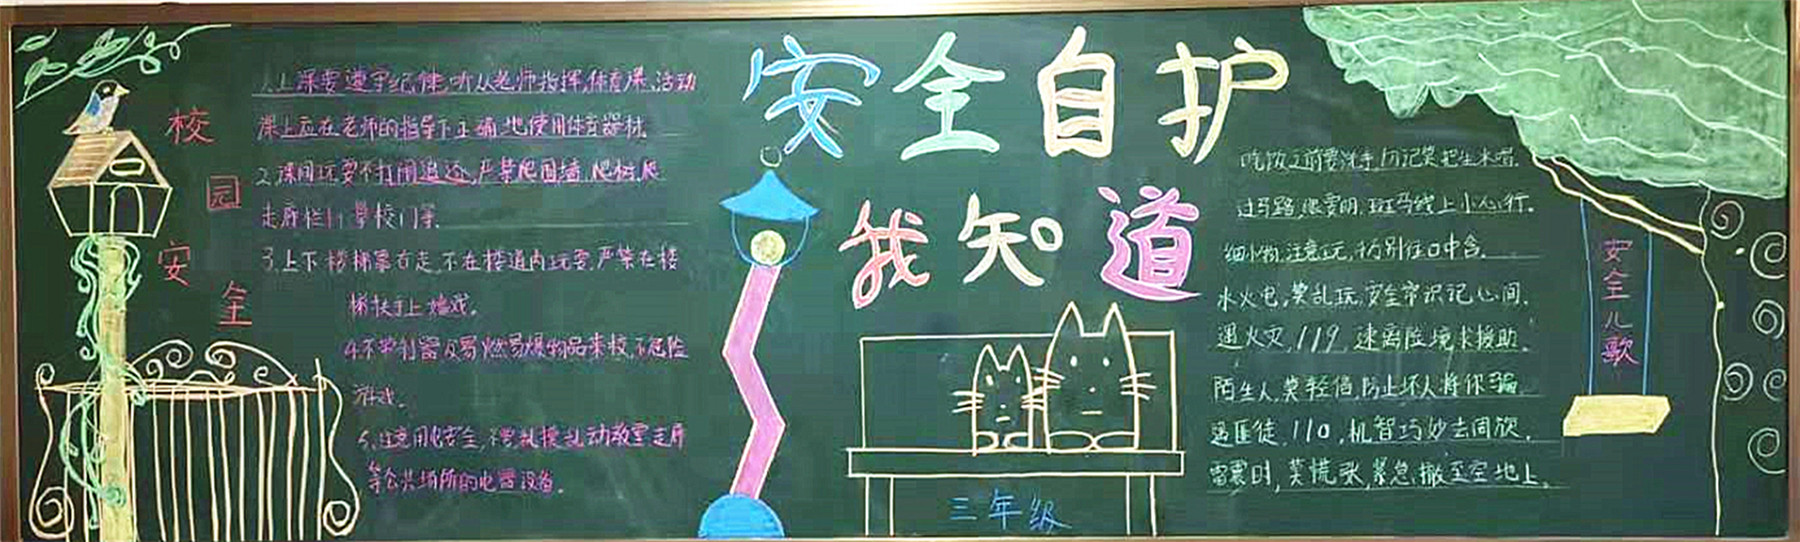 校园安全
1.上课要遵守纪律,听从老师指挥,体育课、活动
课上应在老师的指导下正确地使用体育器材.
2.课间玩耍不打闹追逐,严禁爬围墙、爬树、爬
走廊栏杆、学校门等.
3.上下楼梯靠右走,不在楼道内玩耍,严禁在楼
梯扶手上嬉戏.
4.不带利器及易燃易爆物品来校,不危险
游戏.
5.注意用电安全,不乱摸乱动教室走廊
等公共场所的电器设备.
安全自护
我知道
三年级
安全儿歌
吃饭之前要洗手,切记莫把生水喝.
过马路,眼要明,斑马线上小心行.
细小物,注意玩,切别往口中含.
水火电,莫乱玩,安全常识记心间.
遇火灾,119,速离险境求援助.
陌生人,莫轻信,防止坏人将你骗.
遇匪徒,110,机智巧妙去周旋.
雷震时,莫慌张,紧急撤至空地上.